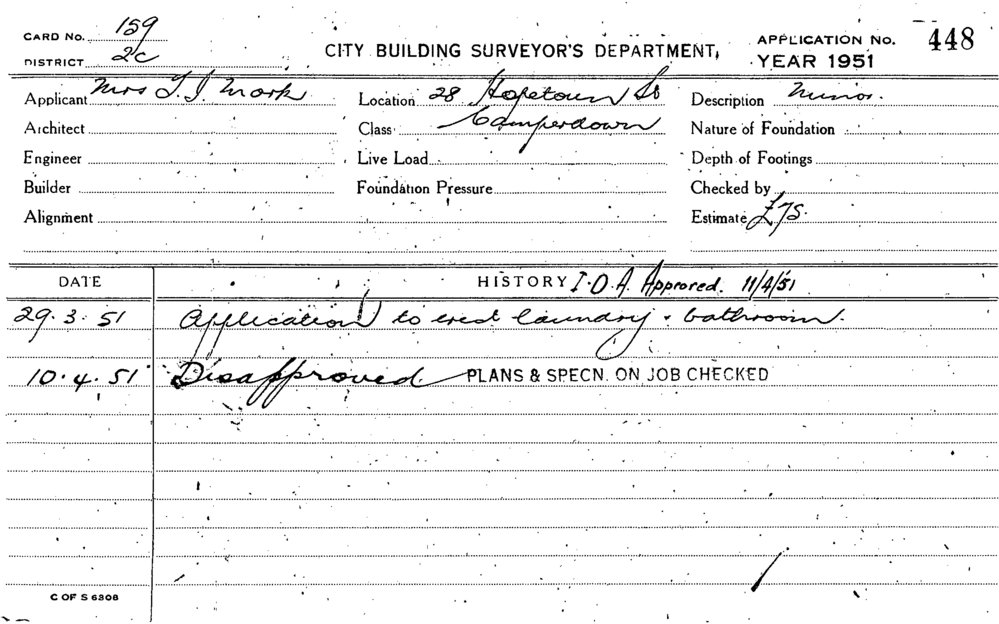 CARD No. 159
DISTRICT 2C
CITY BUILDING SURVEYOR'S DEPARTMENT,
APPLICATION No. 448
YEAR 1951
Applicant Mrs
Location 28 Hopetoun St
Description Minor.
Architect
Class Camperdown
Nature of Foundation
Engineer
Live Load
Depth of Footings
Builder
Foundation Pressure
Checked by
Alignment
Estimate £75.
DATE
HISTORY I.D.A. Approved. 11/4/51
29.3.51 Application to erect laundry & bathroom.
10.4.51 Disapproved PLANS & SPECN. ON JOB CHECKED
C OF S 6308